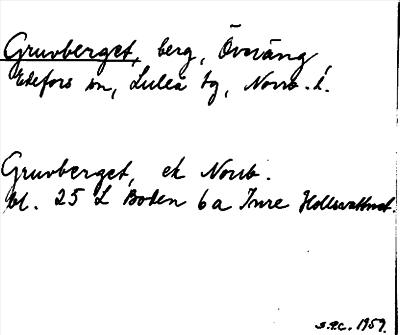 Gruvberget, berg, Överäng
Edefors sn, Luleå tg, Norrb. l.
Gruvberget, ek Norrb.
bl. 25 L Boden 6 a Inre
S.P.C. 1959.